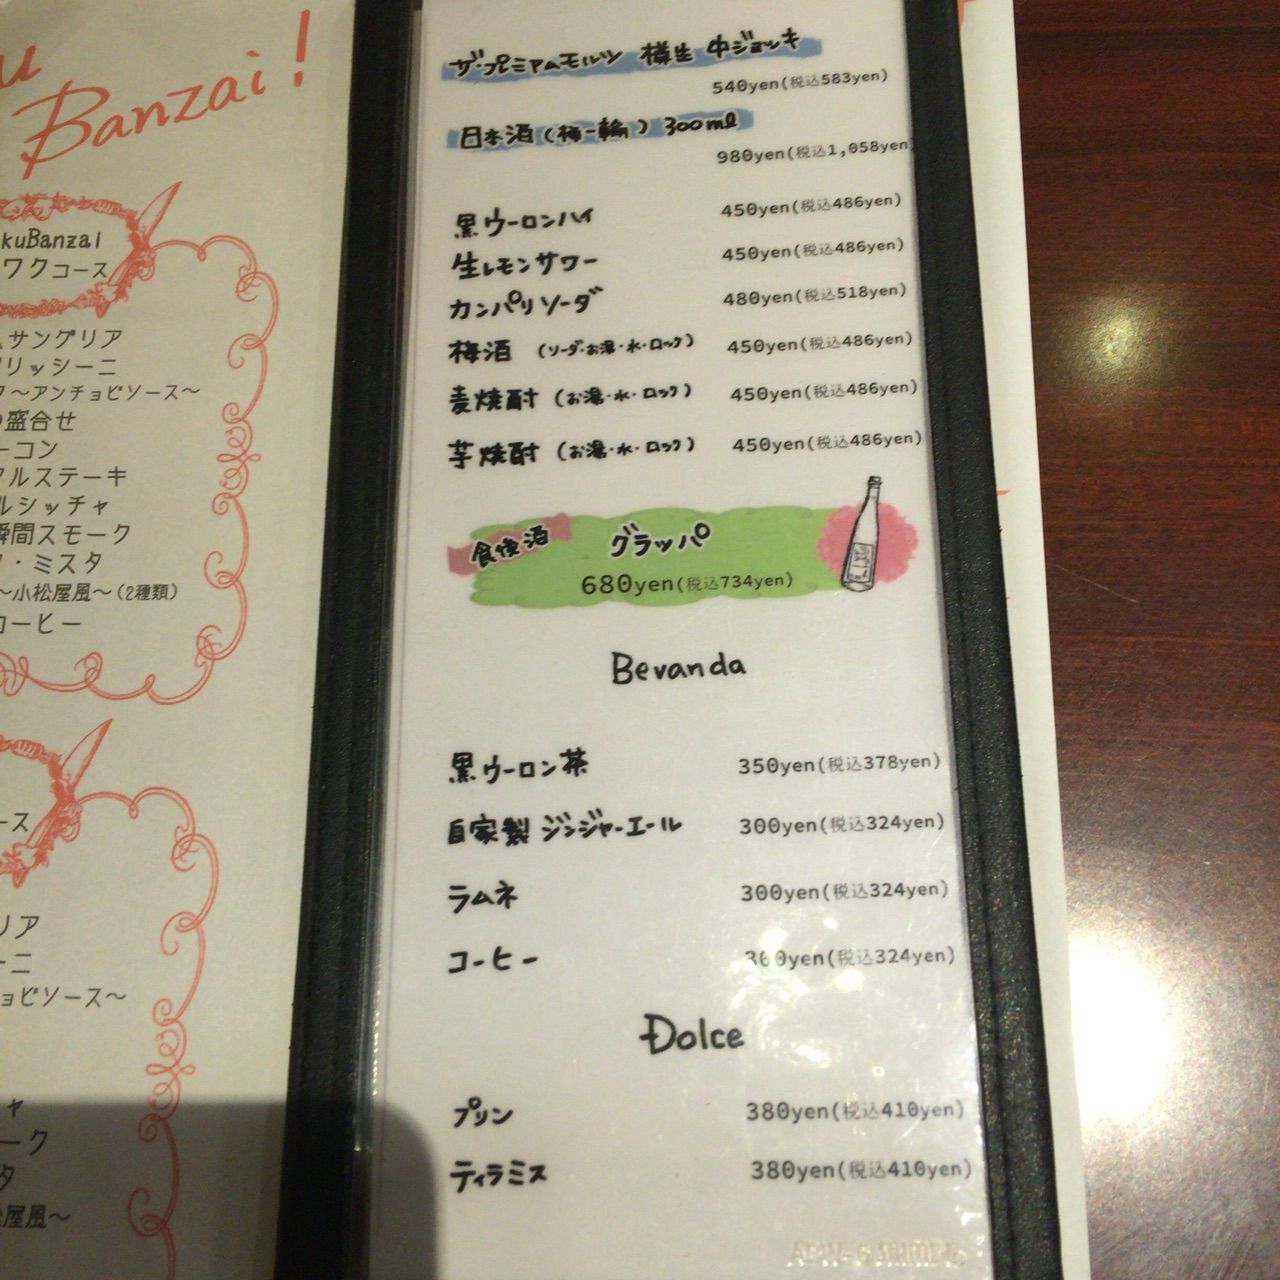 Banzai!
kuBanzai
ワクコース
サングリア
リッシーニ
～アンチョビソース～
盛合せ
ーコン
ルステーキ
ルシッチャ
瞬間スモーク
・ミスタ
～小松屋風～(2種類)
コーヒー
ース
リア
ーニ
ョビソース～
ャ
ーク
タ
屋風～
ザ・プレミアムモルツ 樽生 中ジョッキ
540yen(税込583yen)
日本酒(梅一輪) 300ml
980yen(税込1,058yen)
黒ウーロンハイ 450yen(税込486yen)
生レモンサワー 450yen(税込486yen)
カンパリソーダ 480yen(税込518yen)
梅酒 (ソーダ・お湯・水・ロック) 450yen(税込486yen)
麦焼酎 (お湯・水・ロック) 450yen(税込486yen)
芋焼酎 (お湯・水・ロック) 450yen(税込486yen)
食後酒 グラッパ
680yen(税込734yen)
Bevanda
黒ウーロン茶 350yen(税込378yen)
自家製 ジンジャーエール 300yen(税込324yen)
ラムネ 300yen(税込324yen)
コーヒー 300yen(税込324yen)
Dolce
プリン 380yen(税込410yen)
ティラミス 380yen(税込410yen)